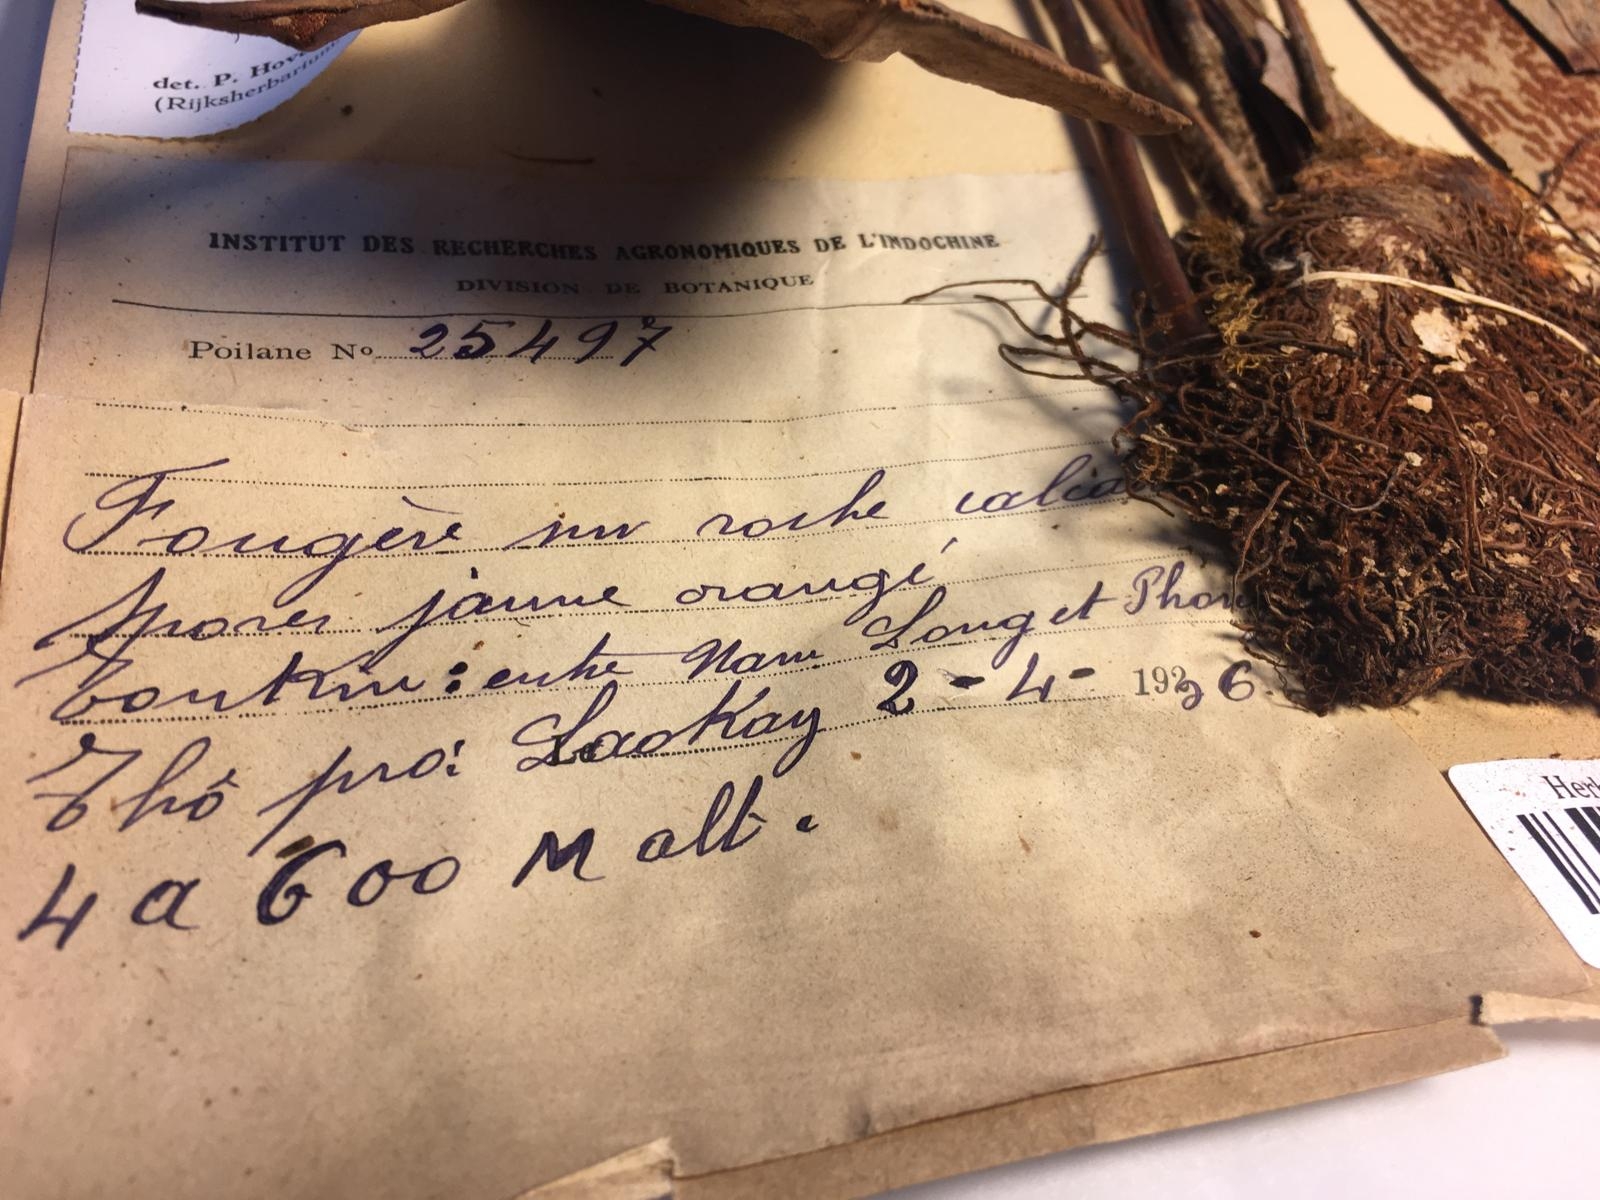 det. P. Hov
(Rijksherbarium
INSTITUT DES RECHERCHES AGRONOMIQUES DE L'INDOCHINE
DIVISION DE BOTANIQUE
Poilane No 25497
Fougère sur roche calca
Spores jaune orangé
Tonkin: entre Nam Long et Phon
Thô pro: Laokay 2-4-1936.
4 a 600 M alt.
Her